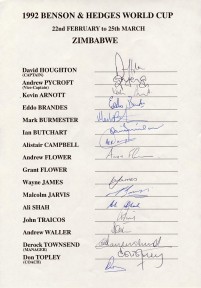 1992 BENSON & HEDGES WORLD CUP
22nd FEBRUARY to 25th MARCH
ZIMBABWE
David HOUGHTON
(CAPTAIN)
Andrew PYCROFT
(Vice-Captain)
Kevin ARNOTT
Eddo BRANDES
Mark BURMESTER
Ian BUTCHART
Alistair CAMPBELL
Andrew FLOWER
Grant FLOWER
Wayne JAMES
Malcolm JARVIS
Ali SHAH
John TRAICOS
Andrew WALLER
Derock TOWNSEND
(MANAGER)
Don TOPLEY
(COACH)